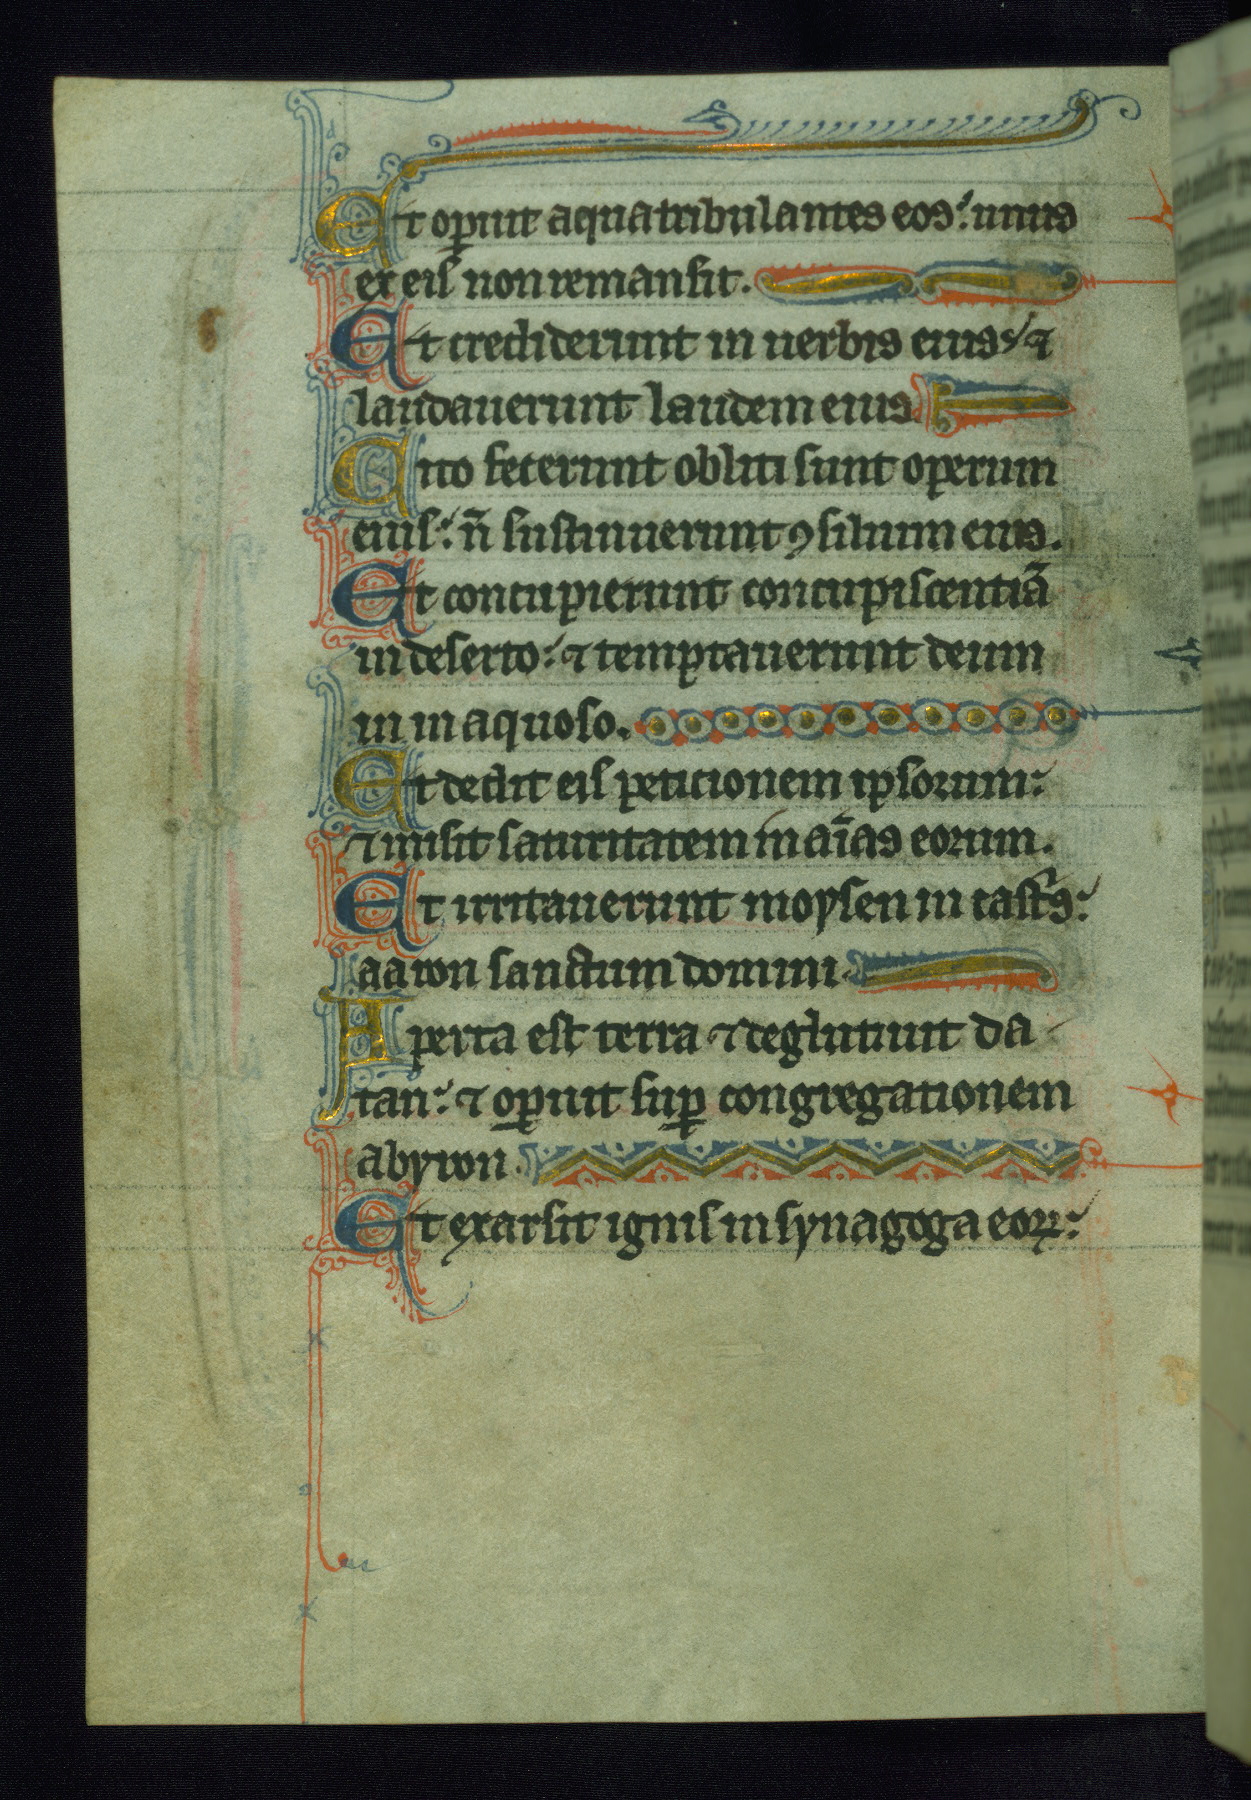 Et op̲uit aqua tribulantes eos: unus
ex eis non remansit.
Et crediderunt in uerbis eius: ⁊
laudauerunt laudem eius.
Cito fecerunt obliti sunt operum
eius: n̄ sustinuerunt ꝯsilium eius.
Et concupierunt concupiscentiā
in deserto: ⁊ temptauerunt deum
in inaquoso.
Et dedit eis peticionem ipsorum:
⁊ misit saturitatem in aīas eorum.
Et irritauerunt moysen in castꝰ:
aaron sanctum domini.
Aperta est terra ⁊ deglutiuit da
tan: ⁊ oꝑuit suꝑ congregationem
abyron.
Et exarsit ignis in synagoga eoꝝ: